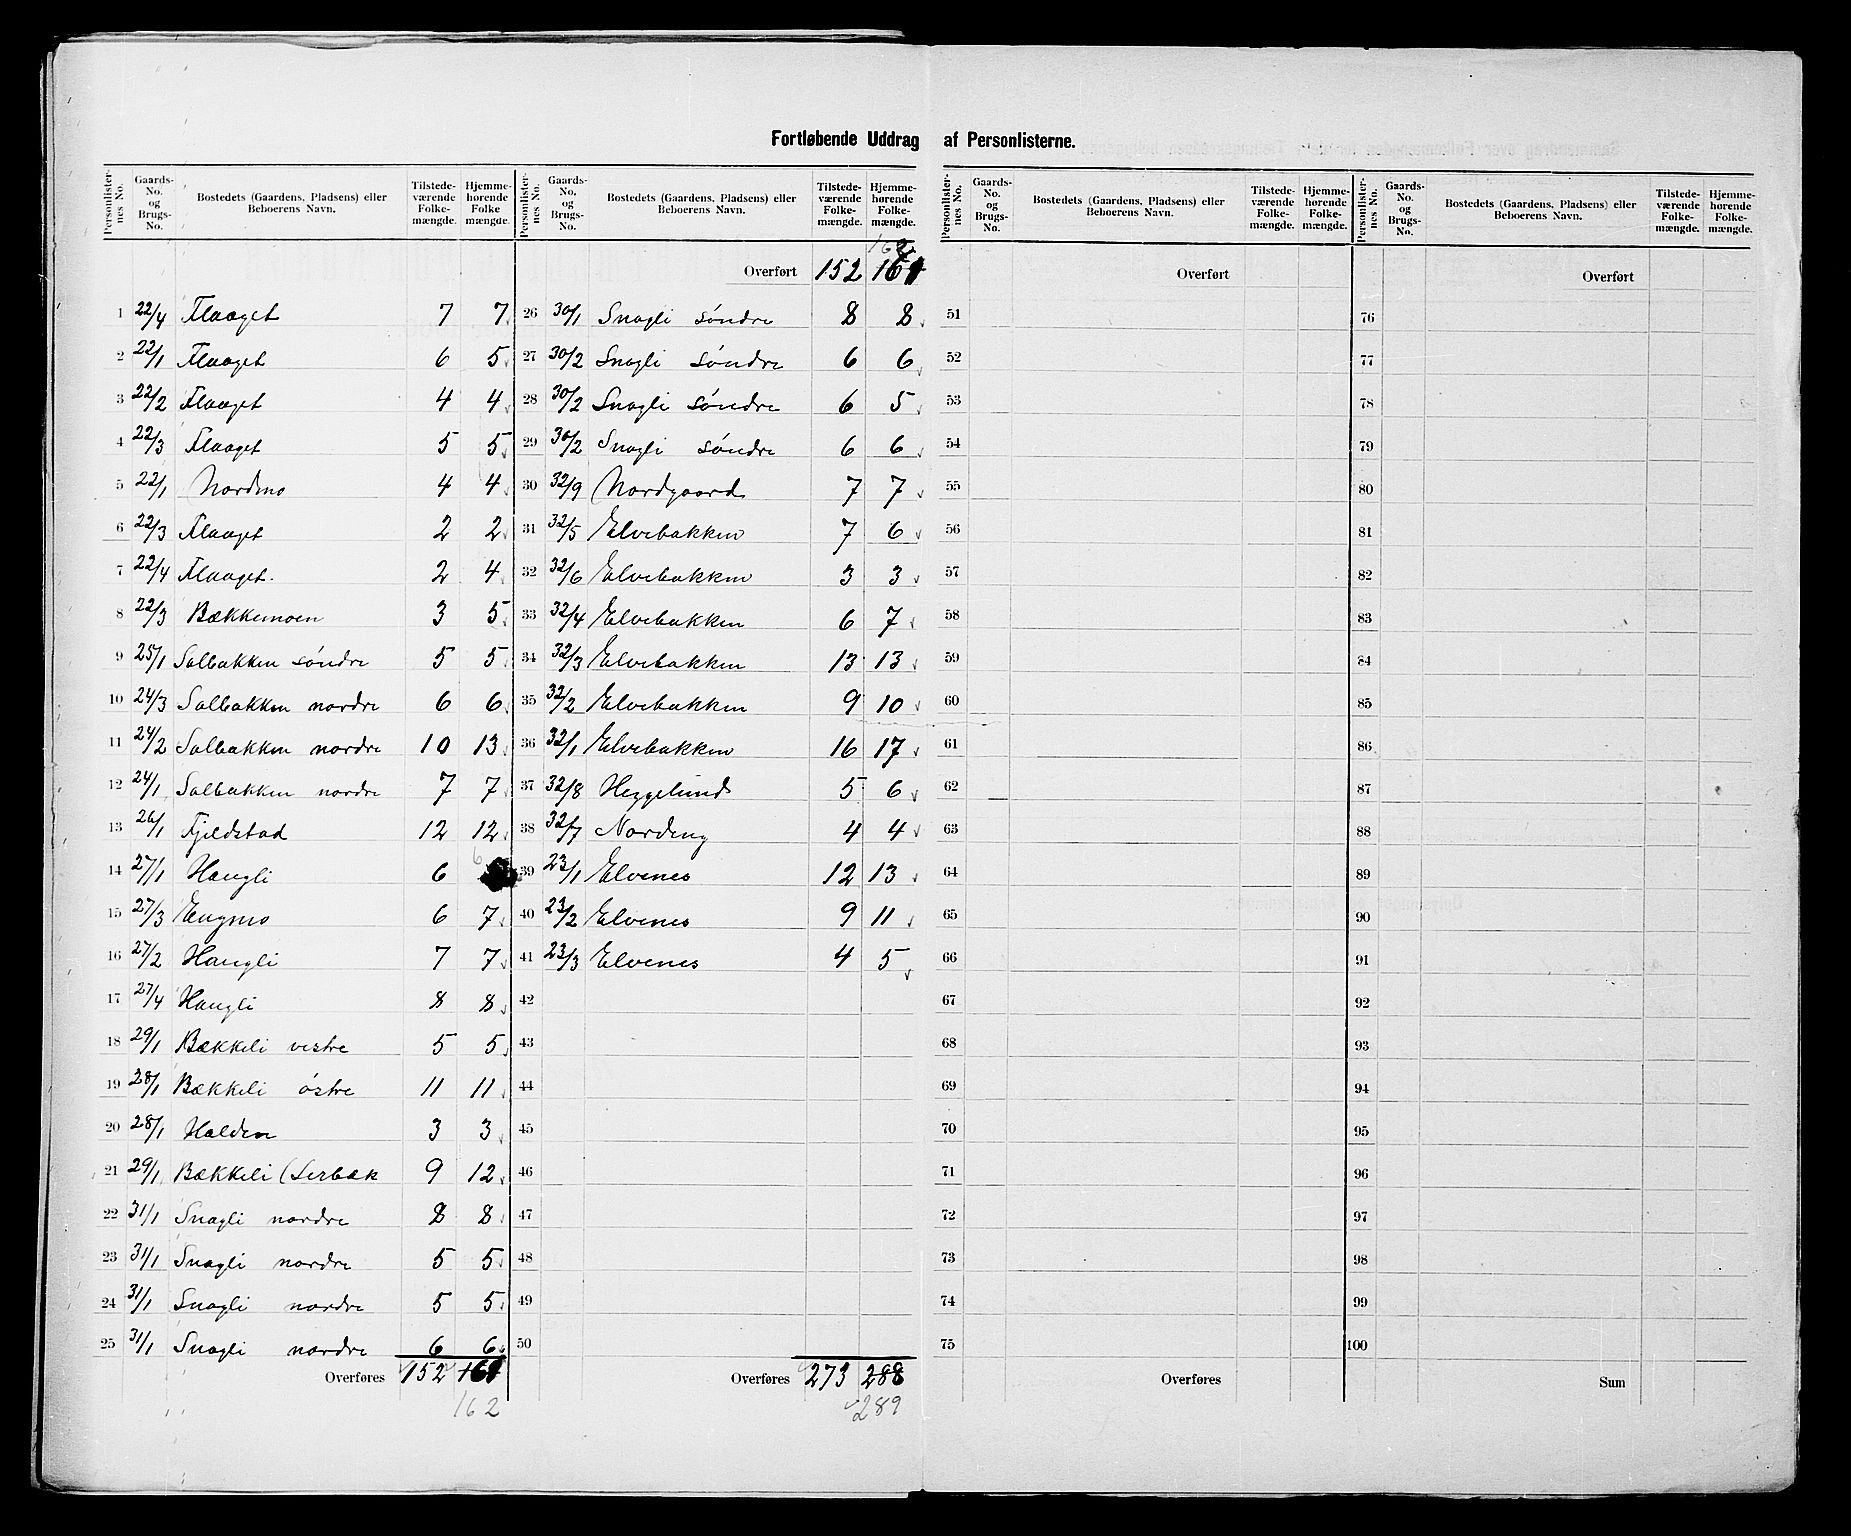 Fortløbende Uddrag af Personlisterne.
Personlister-nes No. | Gaards-No. og Brugs-No. | Bostedets (Gaardens, Pladsens) eller Beboerens Navn. | Tilstede-værende Folke-mængde. | Hjemme-hørende Folke mængde.
1 22/4 Flaaget 7 7
2 22/1 Flaaget 6 5
3 22/2 Flaaget 4 4
4 22/3 Flaaget 5 5
5 22/1 Nordmo 4 4
6 22/3 Flaaget 2 2
7 22/4 Flaaget. 2 4
8 22/3 Bækkemoen 3 5
9 25/1 Solbakken søndre 5 5
10 24/3 Solbakken nordre 6 6
11 24/2 Solbakken nordre 10 13
12 24/1 Solbakken nordre 7 7
13 26/1 Fjeldstad 12 12
14 27/1 Haugli 6 6
15 27/3 Engmo 6 7
16 27/2 Haugli 7 7
17 27/4 Haugli 8 8
18 29/1 Bækkeli vestre 5 5
19 28/1 Bækkeli østre 11 11
20 28/1 Holden 3 3
21 29/1 Bækkeli (Lerbæk 9 12
22 31/1 Snogli nordre 8 8
23 31/1 Snogli nordre 5 5
24 31/1 Snogli nordre 5 5
25 31/1 Snogli nordre 6 6
Overføres 152 161
162
Personlister-nes No. | Gaards-No. og Brugs-No. | Bostedets (Gaardens, Pladsens) eller Beboerens Navn. | Tilstede-værende Folke-mængde. | Hjemme-hørende Folke-mængde.
162
Overført 152 161
26 30/1 Snogli søndre 8 8
27 30/2 Snogli søndre 6 6
28 30/2 Snogli søndre 6 5
29 30/2 Snogli søndre 6 6
30 32/9 Nordgaard 7 7
31 32/5 Elvebakken 7 6
32 32/6 Elvebakken 3 3
33 32/4 Elvebakken 6 7
34 32/3 Elvebakken 13 13
35 32/2 Elvebakken 9 10
36 32/1 Elvebakken 16 17
37 32/8 Heggelund 5 6
38 32/7 Nordeng 4 4
39 23/1 Elvenes 12 13
40 23/2 Elvenes 9 11
41 23/3 Elvenes 4 5
42
43
44
45
46
47
48
49
50
Overføres 273 288
289
Personlister-nes No. | Gaards-No. og Brugs-No. | Bostedets (Gaardens, Pladsens) eller Beboerens Navn. | Tilstede-værende Folke-mængde. | Hjemme-hørende Folke-mængde.
Overført
51
52
53
54
55
56
57
58
59
60
61
62
63
64
65
66
67
68
69
70
71
72
73
74
75
Overføres
Personlister-nes No. | Gaards-No. og Brugs-No. | Bostedets (Gaardens, Pladsens) eller Beboerens Navn. | Tilstede-værende Folke-mængde. | Hjemme-hørende Folke-mængde.
Overført
76
77
78
79
80
81
82
83
84
85
86
87
88
89
90
91
92
93
94
95
96
97
98
99
100
Sum